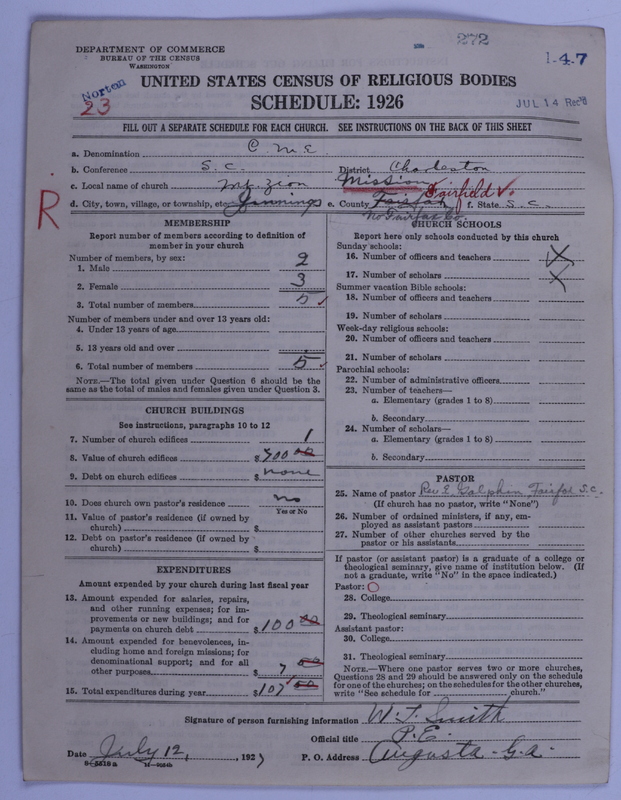 272
DEPARTMENT OF COMMERCE
BUREAU OF THE CENSUS
WASHINGTON
1-47
Norton
23
UNITED STATES CENSUS OF RELIGIOUS BODIES
SCHEDULE: 1926
JUL 14 Rec'd
FILL OUT A SEPARATE SCHEDULE FOR EACH CHURCH. SEE INSTRUCTIONS ON THE BACK OF THIS SHEET
a. Denomination C. M. E.
b. Conference S. C. District Charleston
c. Local name of church Mt. Zion Mission
d. City, town, village, or township, etc. Jennings e. County Fairfax Fairfield ✓ f. State S. C.
No Fairfax Co.
R
MEMBERSHIP
Report number of members according to definition of member in your church
Number of members, by sex:
1. Male 2
2. Female 3
3. Total number of members 5 ✓
Number of members under and over 13 years old:
4. Under 13 years of age
5. 13 years old and over
6. Total number of members 5 ✓
NOTE.—The total given under Question 6 should be the same as the total of males and females given under Question 3.
CHURCH BUILDINGS
See instructions, paragraphs 10 to 12
7. Number of church edifices 1
8. Value of church edifices $700 00
9. Debt on church edifices $ none
10. Does church own pastor's residence no
Yes or No
11. Value of pastor's residence (if owned by church) $
12. Debt on pastor's residence (if owned by church) $
EXPENDITURES
Amount expended by your church during last fiscal year
13. Amount expended for salaries, repairs, and other running expenses; for improvements or new buildings; and for payments on church debt $100 00
14. Amount expended for benevolences, including home and foreign missions; for denominational support; and for all other purposes $ 7 00
15. Total expenditures during year $107 00
CHURCH SCHOOLS
Report here only schools conducted by this church
Sunday schools:
16. Number of officers and teachers X
17. Number of scholars X
Summer vacation Bible schools:
18. Number of officers and teachers
19. Number of scholars
Week-day religious schools:
20. Number of officers and teachers
21. Number of scholars
Parochial schools:
22. Number of administrative officers
23. Number of teachers—
a. Elementary (grades 1 to 8)
b. Secondary
24. Number of scholars—
a. Elementary (grades 1 to 8)
b. Secondary
PASTOR
25. Name of pastor Rev E. Golphin, Fairfax S.C.
(If church has no pastor, write "None")
26. Number of ordained ministers, if any, employed as assistant pastors
27. Number of other churches served by the pastor or his assistants
If pastor (or assistant pastor) is a graduate of a college or theological seminary, give name of institution below. (If not a graduate, write "No" in the space indicated.)
Pastor: O
28. College
29. Theological seminary
Assistant pastor:
30. College
31. Theological seminary
NOTE.—Where one pastor serves two or more churches, Questions 28 and 29 should be answered only on the schedule for one of the churches; on the schedules for the other churches, write "See schedule for church."
Signature of person furnishing information W. T. Smith
Official title P. E.
Date July 12, 1927 P. O. Address Augusta - Ga.
8-5518a